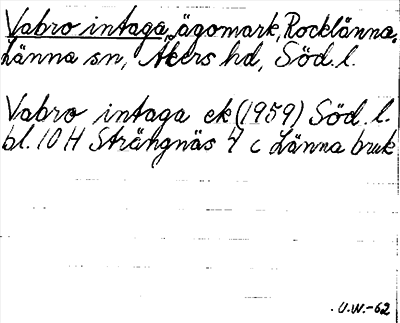 Vabro intaga, ägomark, Rocklänna,
Länna sn, Åkers hd, Söd. l.
Vabro intaga ek (1959) Söd. l.
bl. 10 H Strängnäs 7 c Länna bruk
U.W.-62